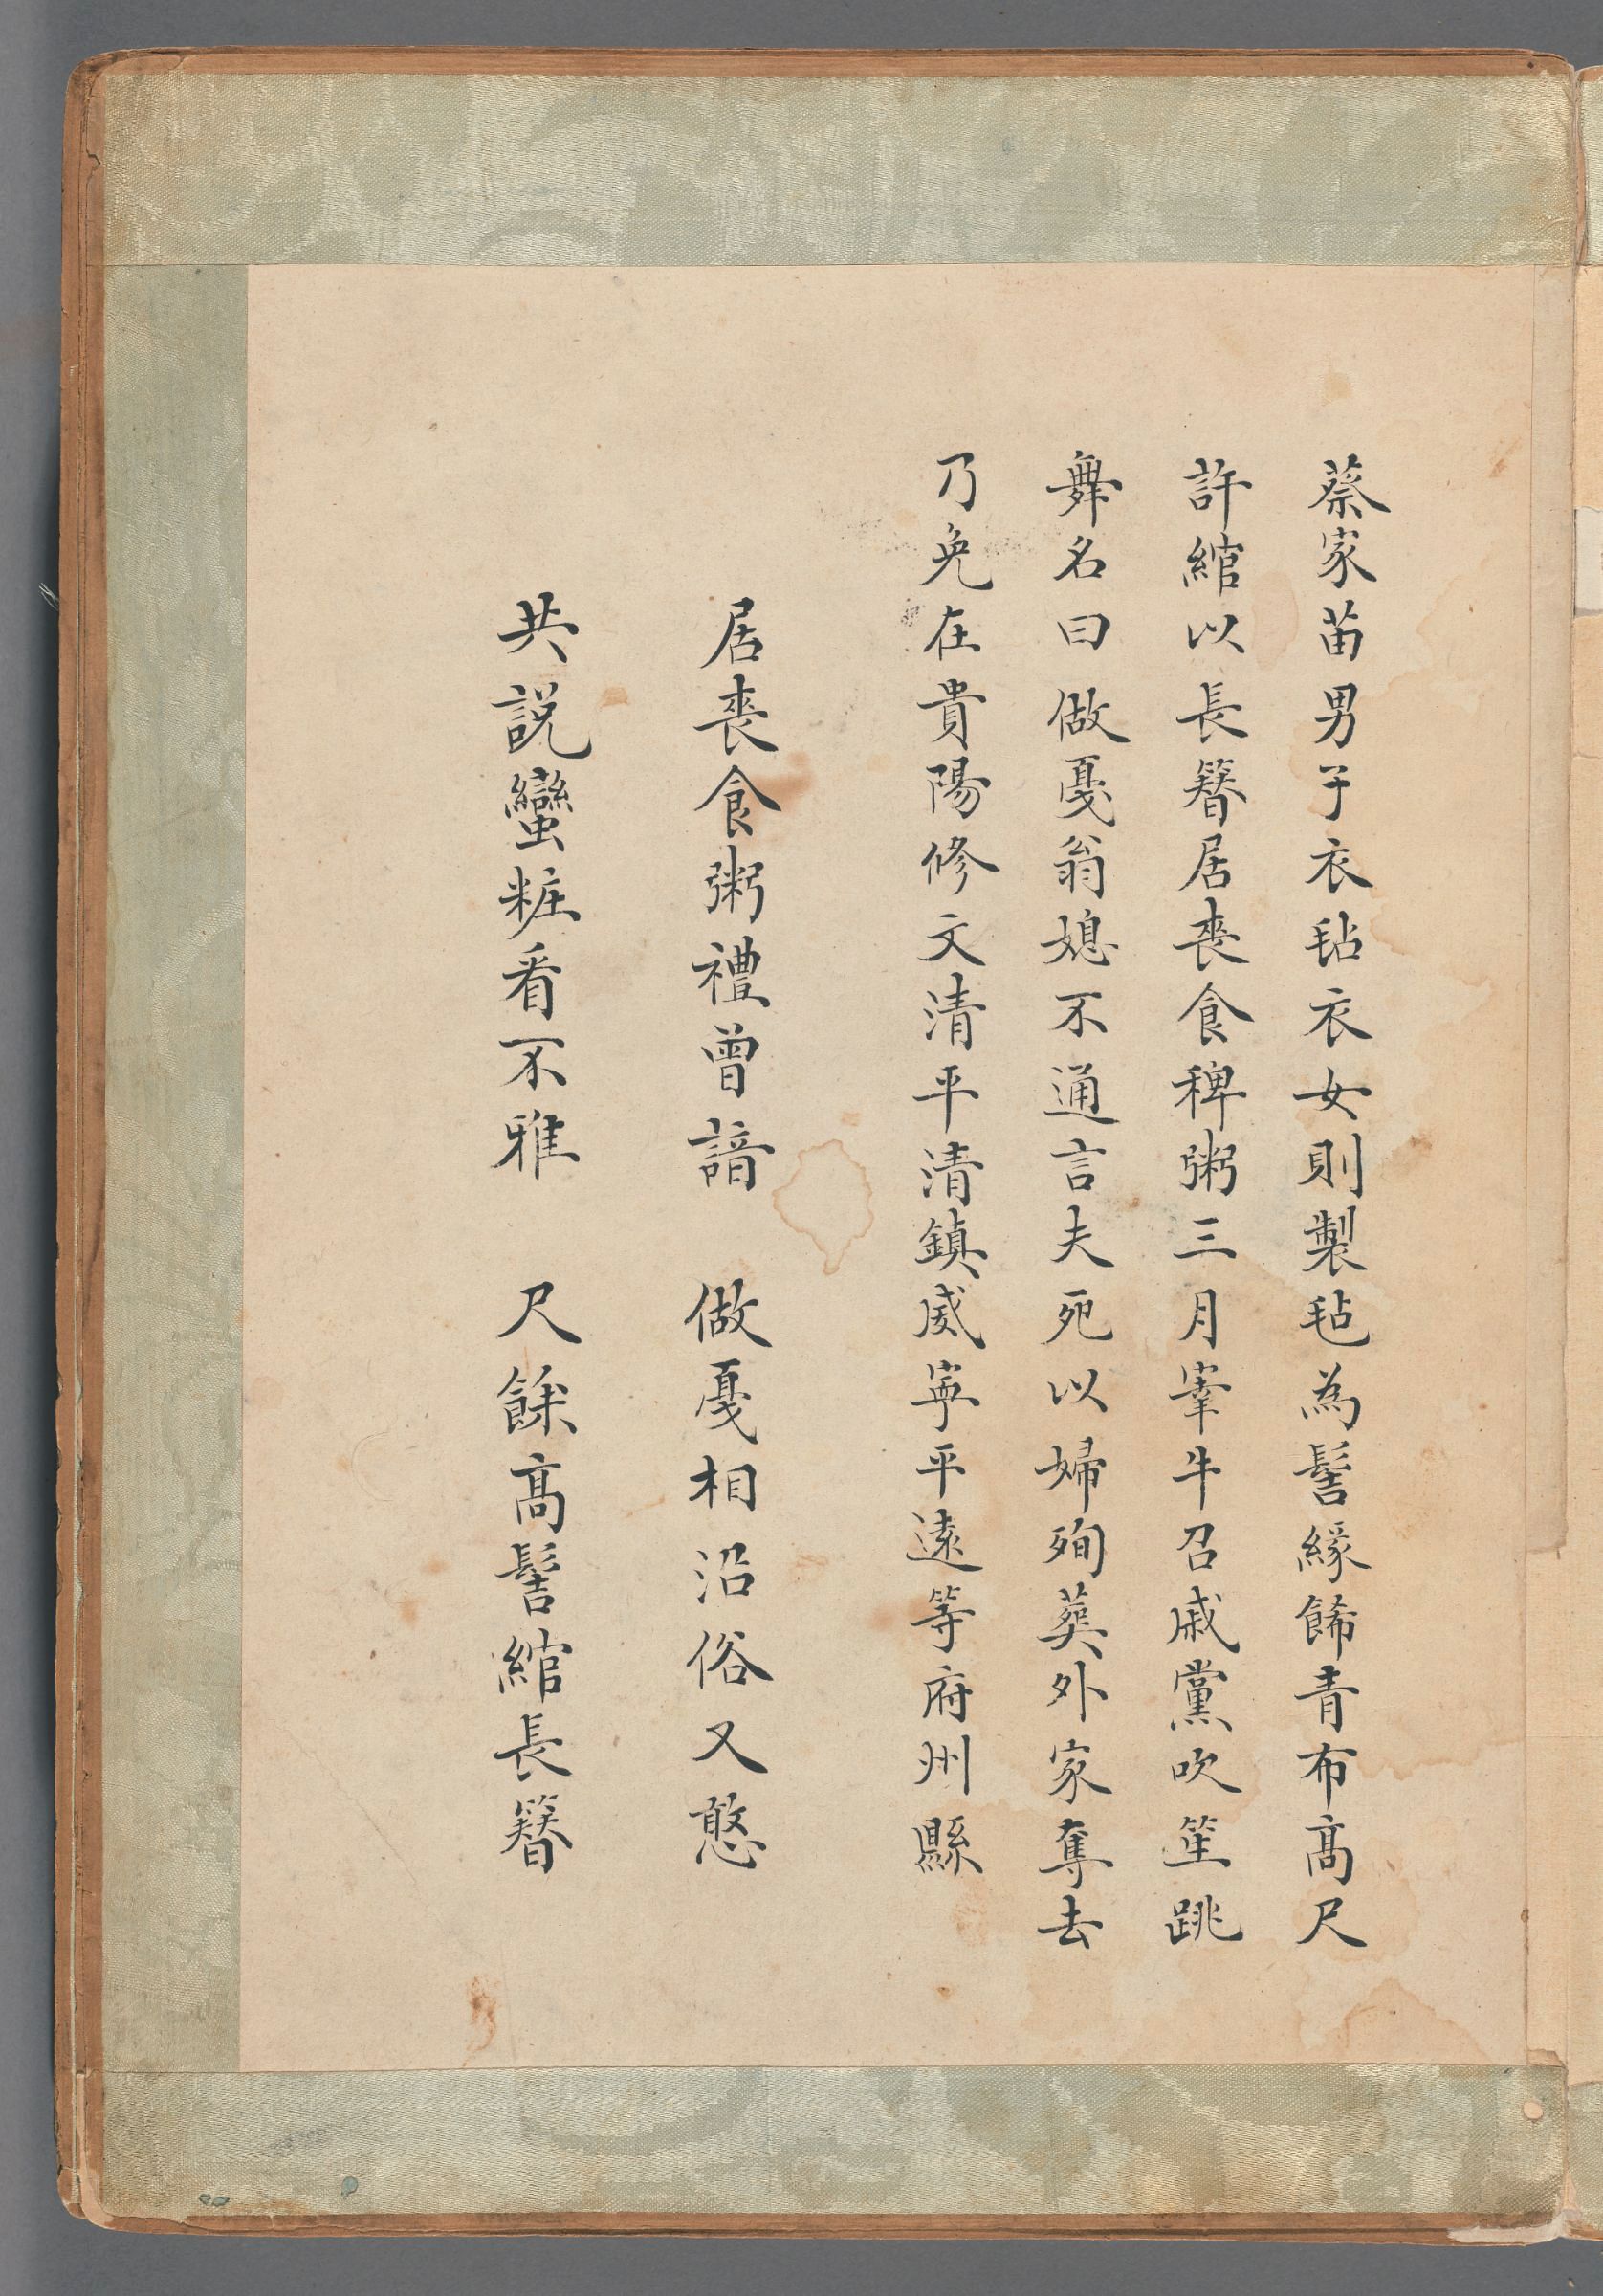 蔡家苗男子衣毡衣女則製毡為髻緣餙青布高尺
許綰以長簪居喪食稗粥三月宰牛召戚黨吹笙跳
舞名曰做戛翁媳不通言夫死以婦殉葬外家奪去
乃免在貴陽修文清平清鎮威寧平遠等府州縣
居喪食粥禮曾諳 做戛相沿俗又憨
共説蠻粧看不雅 尺餘高髻綰長簪